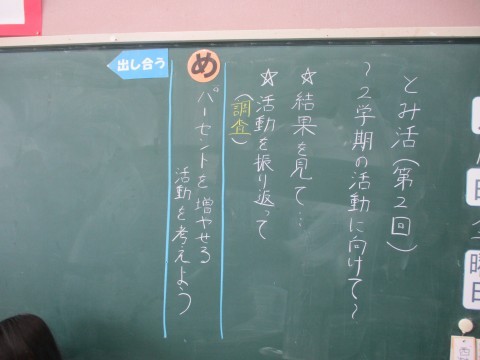 とみ活(第2回)
~2学期の活動に向けて~
☆結果を見て…
☆活動を振り返って
(調査)
め
パーセントを増やせる
活動を考えよう
出し合う
日
曜日